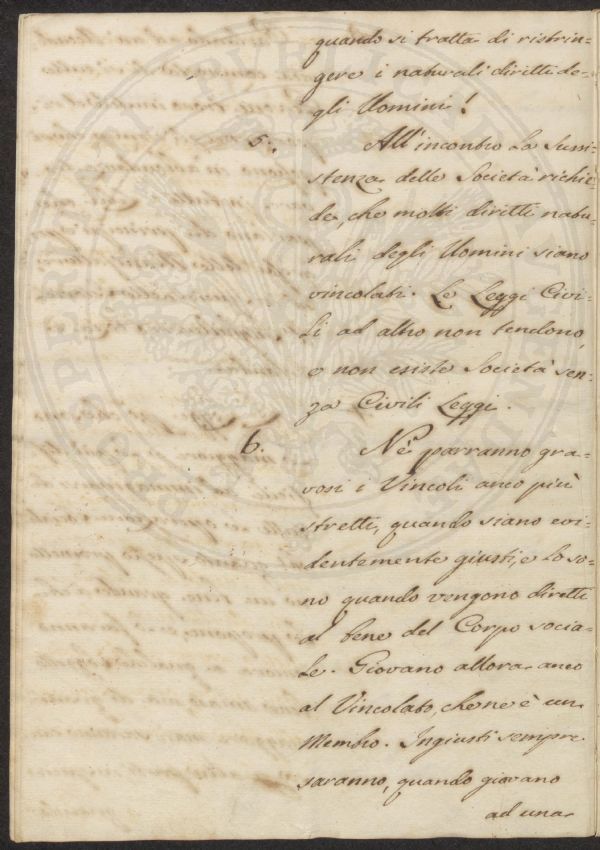 quando si tratta di ristrin=
gere i naturali diritti de=
gli Uomini!
5. All' incontro la Sussi=
stenza delle Società richie=
de, che molti diritti natu=
rali degli Uomini siano
vincolati. Le Leggi Civi=
li ad altro non tendono,
e non esiste Società sen=
za Civili Leggi.
6. Nè parranno gra=
vosi i Vincoli anco più
stretti, quando siano evi=
dentemente giusti, e lo so=
no quando vengono diretti
al bene del Corpo socia=
le. Giovano allora anco
al Vincolato, che ne è un
Membro. Ingiusti sempre
saranno, quando giovano
ad una